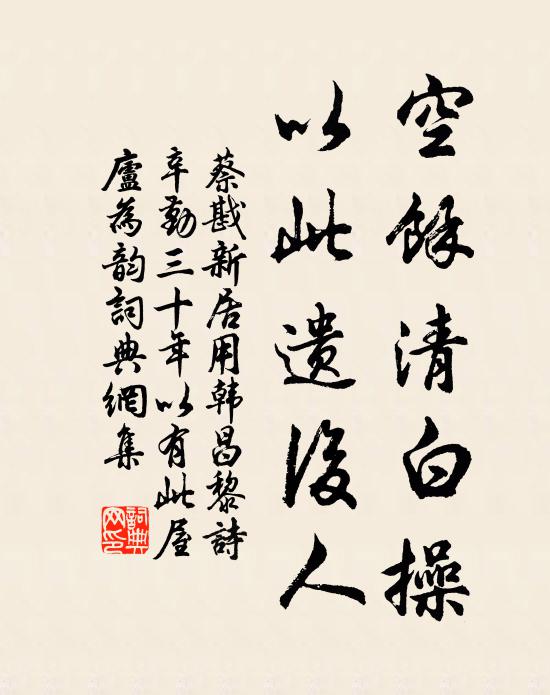 空餘清白操
以此遺後人
蔡戡新居用韩昌黎詩
辛勤三十年以有此屋
廬為韵詞典網集
詞典網印